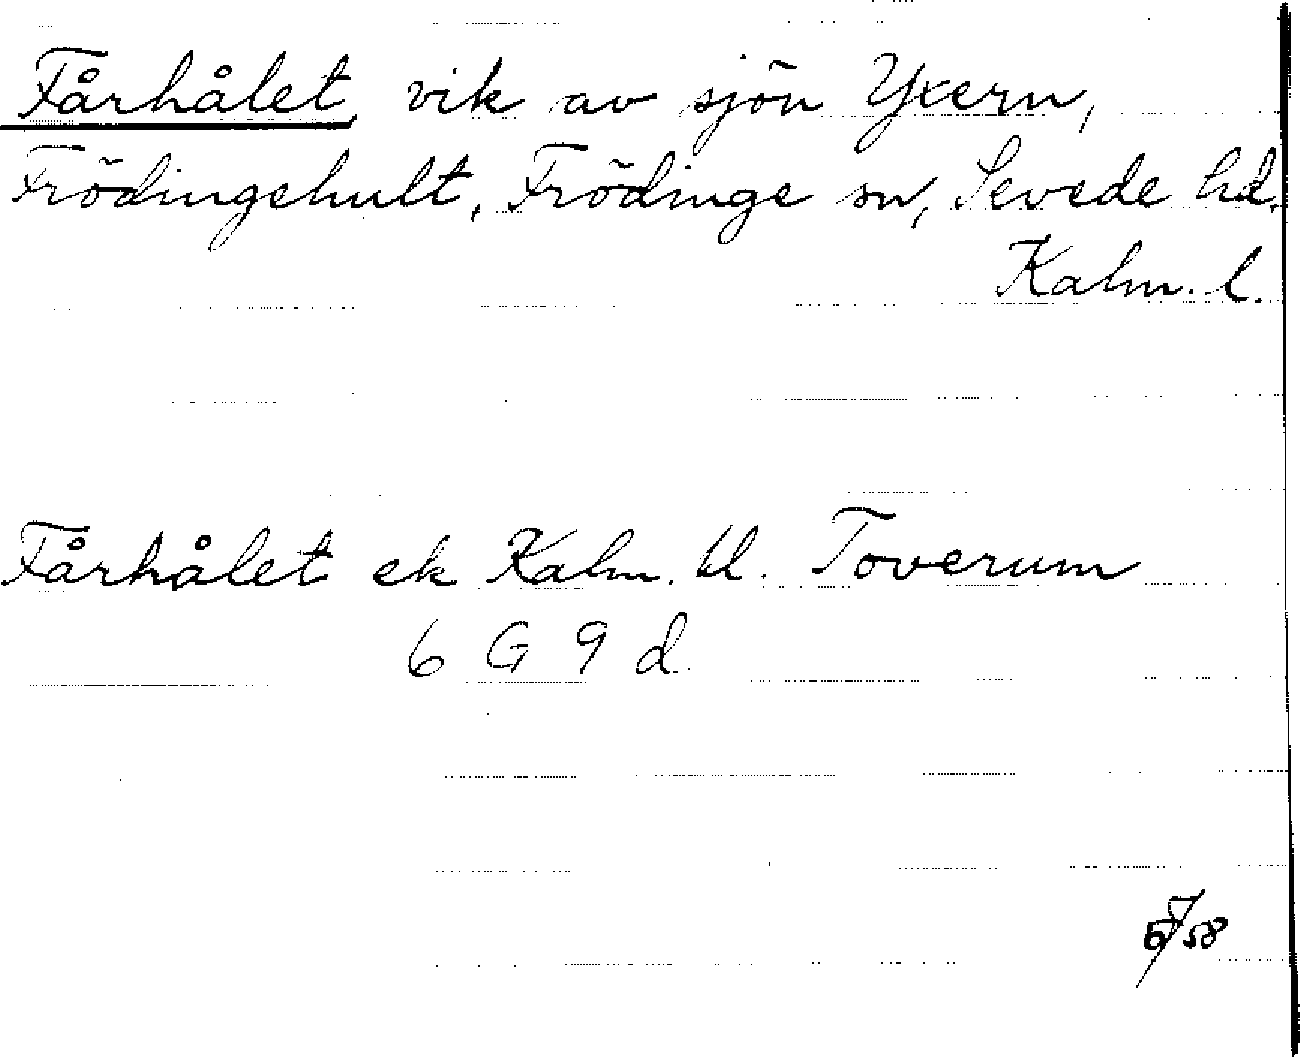 Fårhålet, vik av sjön Yxern,
Frödingehult, Frödinge sn, Sevede hd.
Kalm. l.
Fårhålet ek Kalm. bl. Toverum
6 G 9 d
58